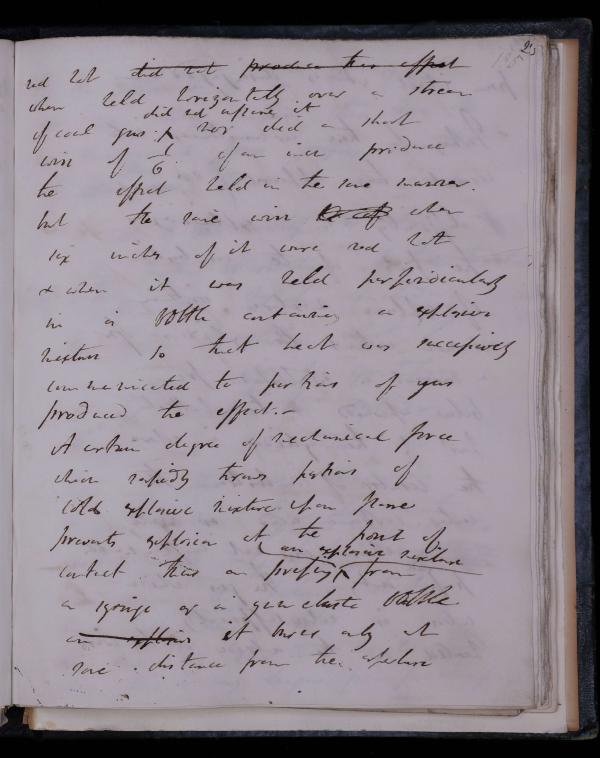 25
red hot did not produce this effect
when held horizontally over a stream
did not inflame it
of coal gas: nor did a short
wire of 1/6 of an inch produce
the effect held in the same manner.
but the same wire when
six inches of it were red hot
& when it was held perpendicularly
in a bottle containing an explosive
mixture so that heat was successively
communicated to portions of gas
produced the effect.-
A certain degree of mechanical force
which rapidly throws portions of
cold explosive mixture upon flame
prevents explosion at the point of
an explosive mixture
contact thus on pressing from
a syringe or a gum elastic bottle
an explosive it burns only at
some distance from the aperture